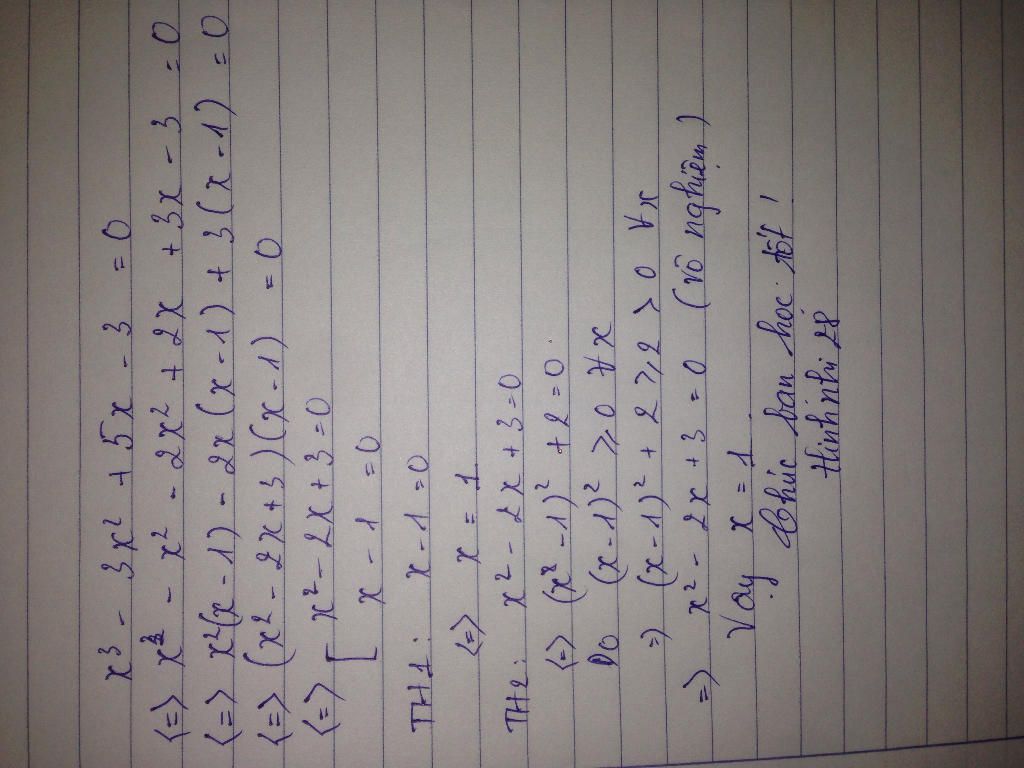 x³ - 3x² + 5x - 3 = 0
<=> x³ - x² - 2x² + 2x + 3x - 3 = 0
<=> x²(x - 1) - 2x(x - 1) + 3(x - 1) = 0
<=> (x² - 2x + 3)(x - 1) = 0
<=> [ x² - 2x + 3 = 0
x - 1 = 0
TH1: x - 1 = 0
<=> x = 1
TH2: x² - 2x + 3 = 0
<=> (x - 1)² + 2 = 0
Do (x - 1)² ⩾ 0 ∀x
=) (x - 1)² + 2 ⩾ 2 > 0 ∀x
=) x² - 2x + 3 = 0 (vô nghiệm)
Vậy x = 1
Chúc bạn học tốt!